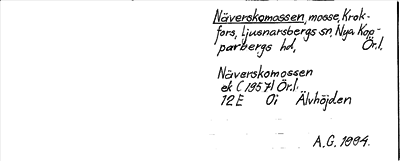 Näverskomossen, mosse, Krok-
fors, Ljusnarsbergs sn, Nya Kop-
parbergs hd, Ör.l.
Näverskomossen
ek (1957) Ör.l.
12E 0i Älvhöjden
A.G. 1994.